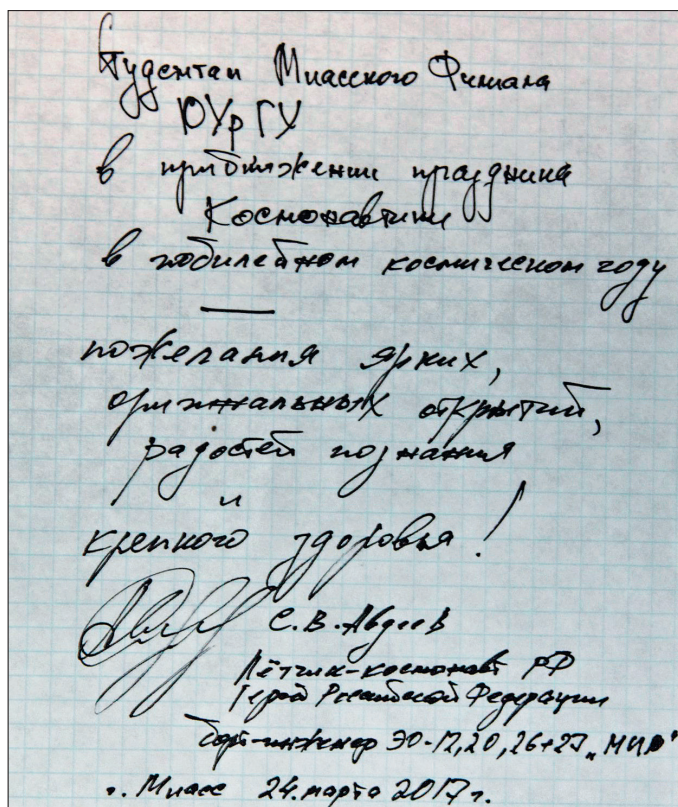 Студентам Миасского Филиала
ЮУрГУ
в приближении праздника
Космонавтики
в юбилейном космическом году
—
пожелания ярких,
оригинальных открытий,
радостей познания
и
крепкого здоровья!
С.В. Авдеев
Лётчик-космонавт РФ
Герой Российской Федерации
борт-инженер ЭО-12,20,26+27 „МИР"
г. Миасс 24 марта 2017 г.